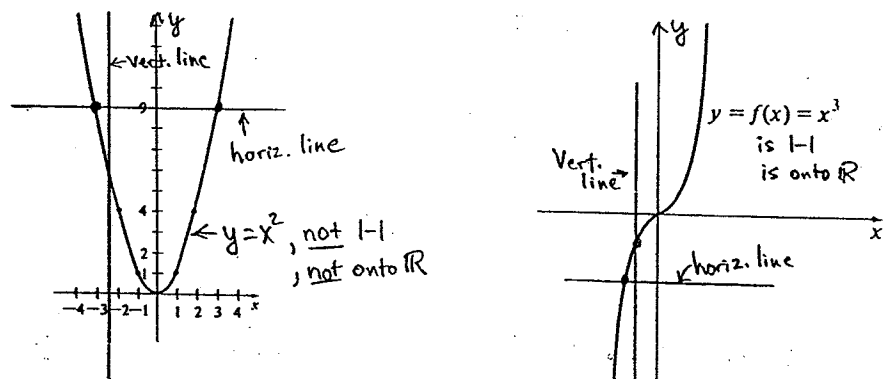 y
←vert. line
9
↑
horiz. line
4
2
1
←y=x², not 1-1
, not onto ℝ
-4 -3 -2 -1 1 2 3 4 x
y
y = f(x) = x³
is 1-1
is onto ℝ
Vert.
line→
x
horiz. line